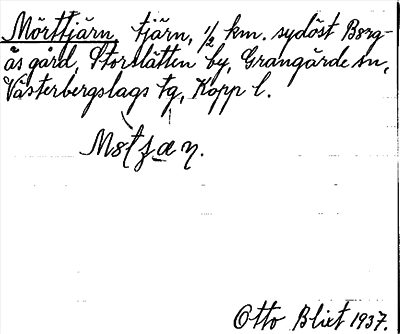 Mörttjärn tjärn, 1/2 km. sydöst Berg-
ås gård, Storslätten by, Grangärde sn,
Västerbergslags tg, Kopp l.
Otto Blixt 1937.